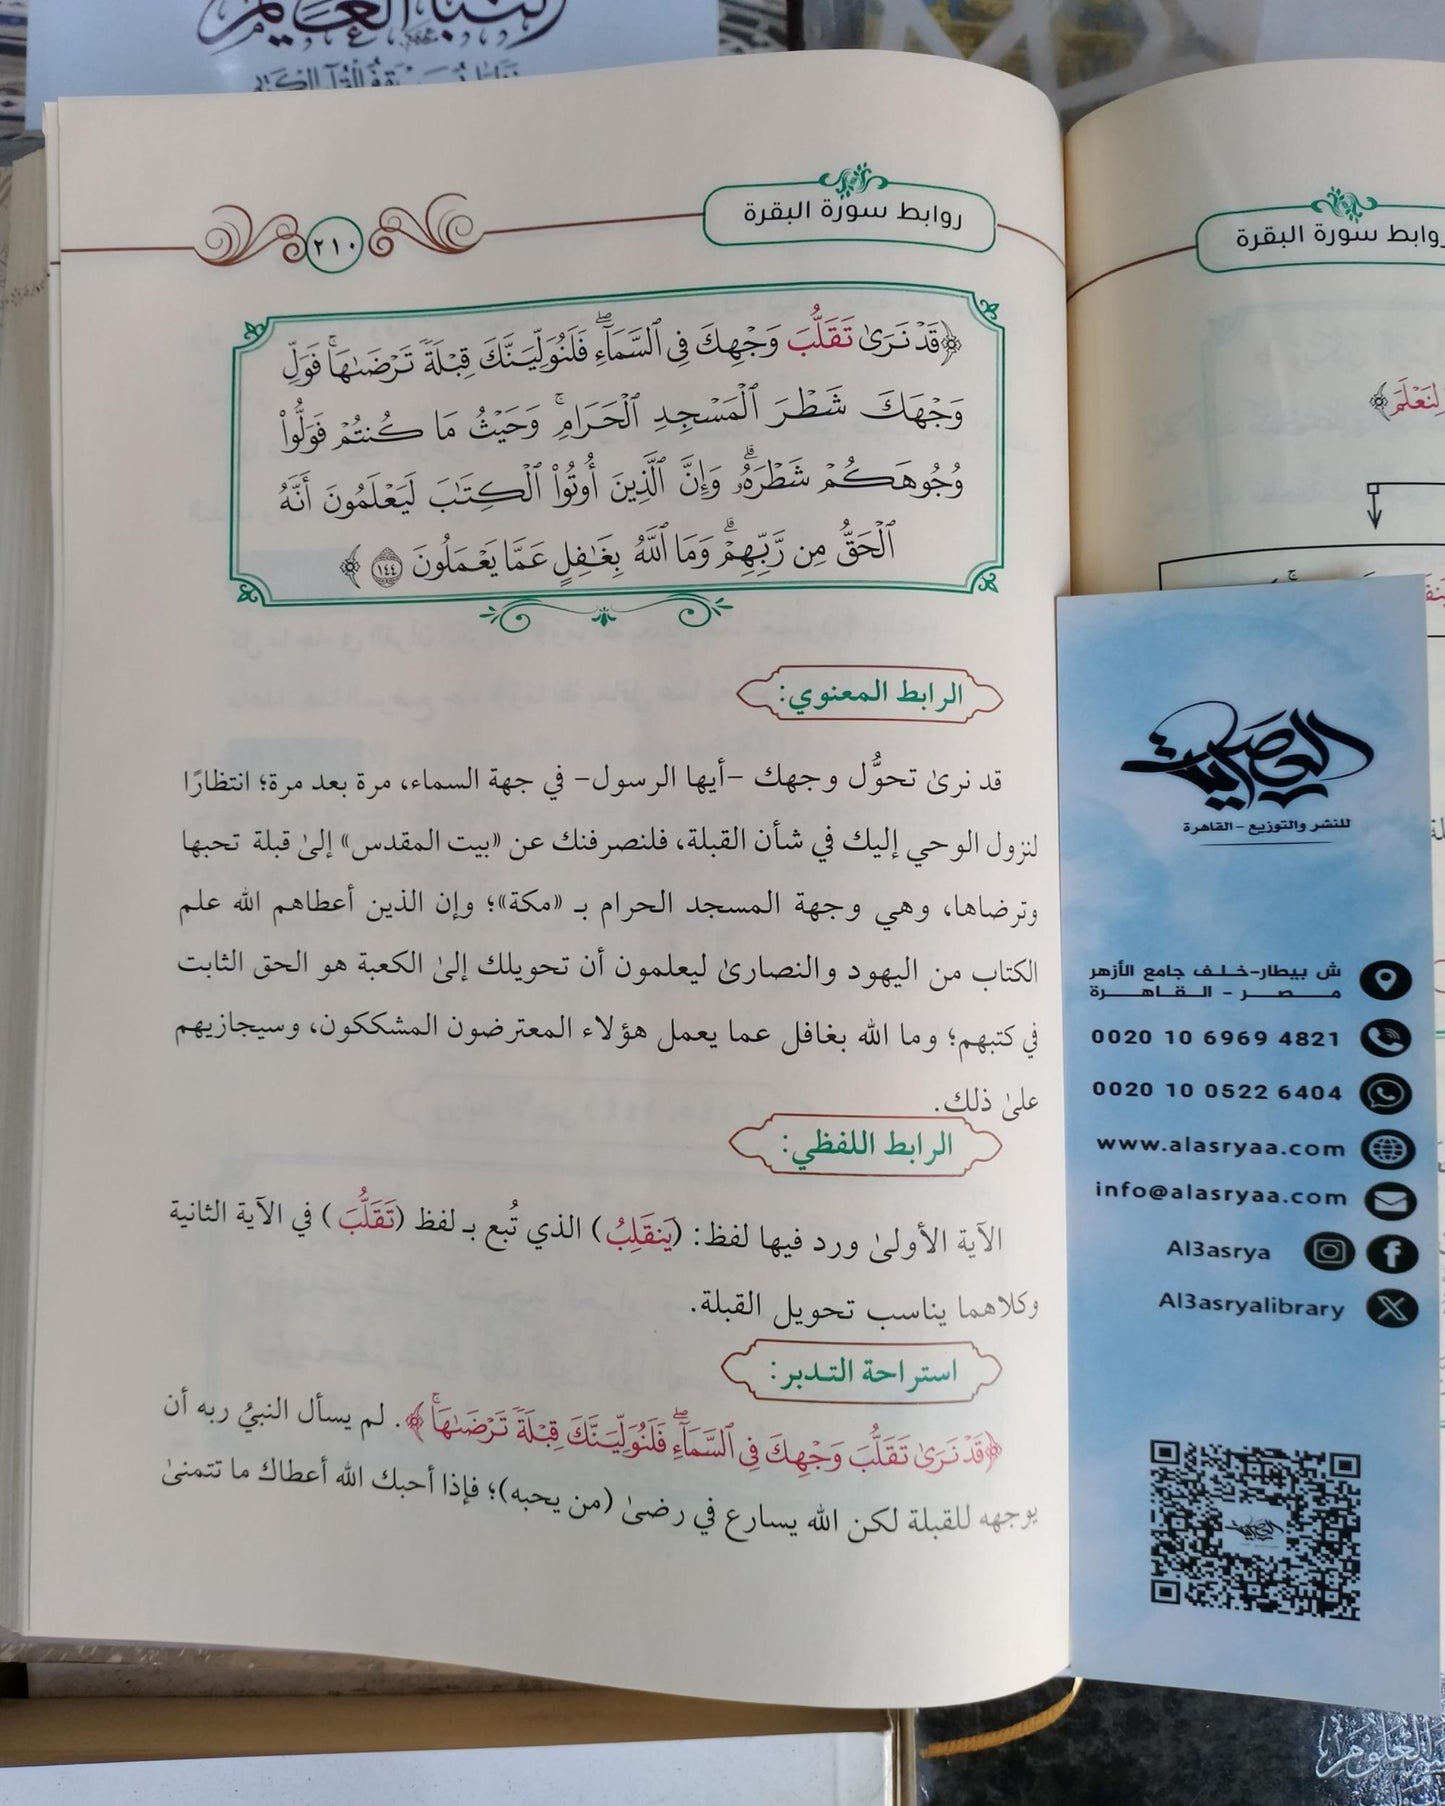 النبأ العظيم
روابط سورة البقرة
٢١٠
﴿قَدْ نَرَىٰ تَقَلُّبَ وَجْهِكَ فِى ٱلسَّمَآءِۖ فَلَنُوَلِّيَنَّكَ قِبْلَةً تَرْضَىٰهَاۚ فَوَلِّ
وَجْهَكَ شَطْرَ ٱلْمَسْجِدِ ٱلْحَرَامِۚ وَحَيْثُ مَا كُنتُمْ فَوَلُّوا۟
وُجُوهَكُمْ شَطْرَهُۥۗ وَإِنَّ ٱلَّذِينَ أُوتُوا۟ ٱلْكِتَٰبَ لَيَعْلَمُونَ أَنَّهُ
ٱلْحَقُّ مِن رَّبِّهِمْۗ وَمَا ٱللَّهُ بِغَٰفِلٍ عَمَّا يَعْمَلُونَ ١٤٤﴾
الرابط المعنوي:
قد نرىٰ تحوُّل وجهك -أيها الرسول- في جهة السماء، مرة بعد مرة؛ انتظارًا
لنزول الوحي إليك في شأن القبلة، فلنصرفنك عن «بيت المقدس» إلىٰ قبلة تحبها
وترضاها، وهي وجهة المسجد الحرام بـ «مكة»؛ وإن الذين أعطاهم الله علم
الكتاب من اليهود والنصارىٰ ليعلمون أن تحويلك إلىٰ الكعبة هو الحق الثابت
في كتبهم؛ وما الله بغافل عما يعمل هؤلاء المعترضون المشككون، وسيجازيهم
علىٰ ذلك.
الرابط اللفظي:
الآية الأولىٰ ورد فيها لفظ: (يَنقَلِبُ) الذي تُبع بـ لفظ (تَقَلُّبَ) في الآية الثانية
وكلاهما يناسب تحويل القبلة.
استراحة التدبر:
﴿قَدْ نَرَىٰ تَقَلُّبَ وَجْهِكَ فِى ٱلسَّمَآءِۖ فَلَنُوَلِّيَنَّكَ قِبْلَةً تَرْضَىٰهَاۚ﴾. لم يسأل النبيُ ربه أن
يوجهه للقبلة لكن الله يسارع في رضىٰ (من يحبه)؛ فإذا أحبك الله أعطاك ما تتمنىٰ
روابط سورة البقرة
لِنَعْلَمَ﴾
العصرية
للنشر والتوزيع - القاهرة
ش بيطار-خلف جامع الأزهر
مصر - القاهرة
0020 10 6969 4821
0020 10 0522 6404
www.alasryaa.com
info@alasryaa.com
Al3asrya
Al3asryalibrary